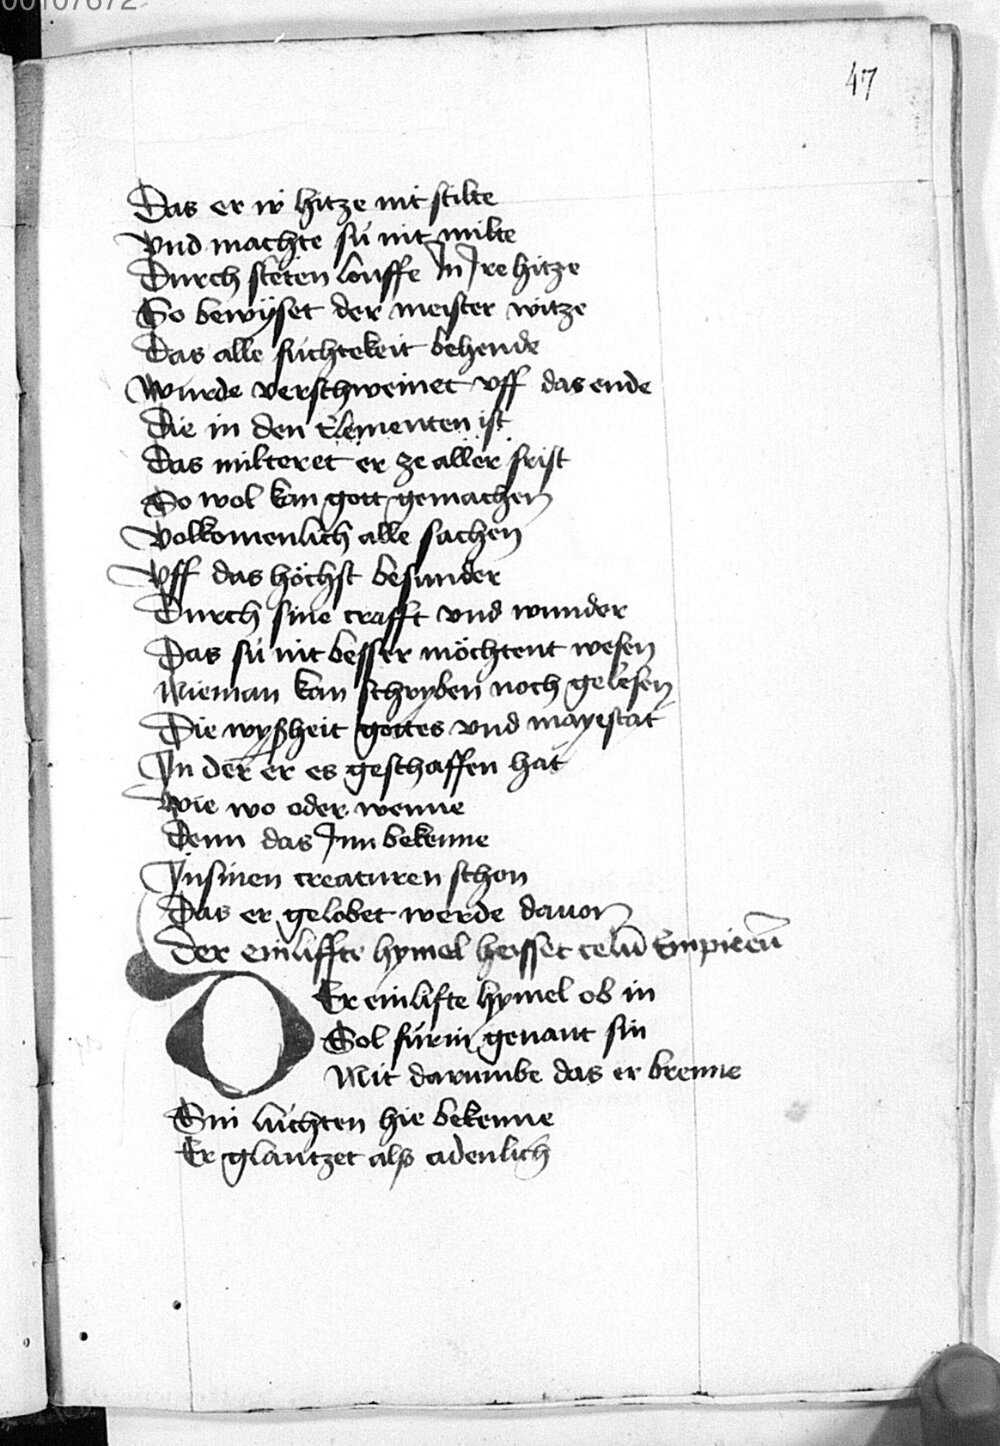 00107672
47
Das er ir hitze nit stilte
Vnd machte sú nit milte
Durch steten louffe In Jre hitze
So bewÿset der meister witze
Das alle fúchtekeit behende
Wurde verschweinet vff das ende
Die in den Elementen ist
Das milteret er ze aller frist
So wol kan gott gemachen
Volkomenlich alle sachen
Vff das höchst besunder
Durch sine crafft vnd wunder
Das sú nit besser möchtent wesen
Nieman kan schryben noch gelesen
Die wyßheit gottes vnd mayestat
In der er es geschaffen hat
Wie wo oder wenne
Denn das Jnn bekenne
In sinen creaturen schon
Das er gelobet werde dauon
Der einliffte hymel heisset celū Empireū
Er einlifte hymel ob in
Sol fúrin genant sin
Nit darumbe das er brenne
Sin lúchten hie bekenne
Er glantzet alß adenlich